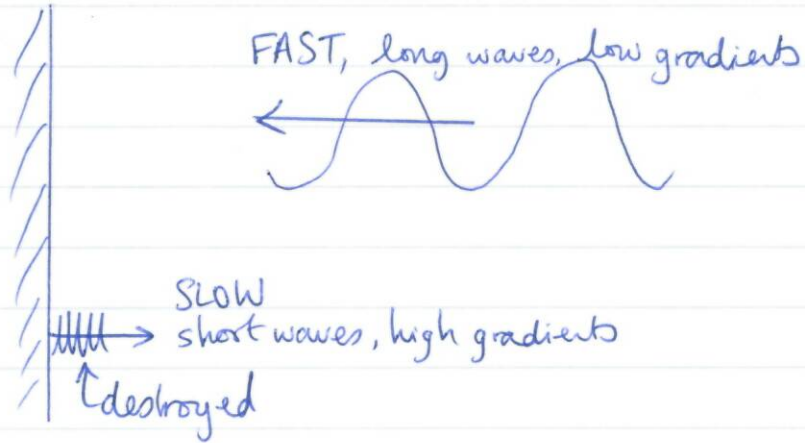 FAST, long waves, low gradients
SLOW
short waves, high gradients
destroyed